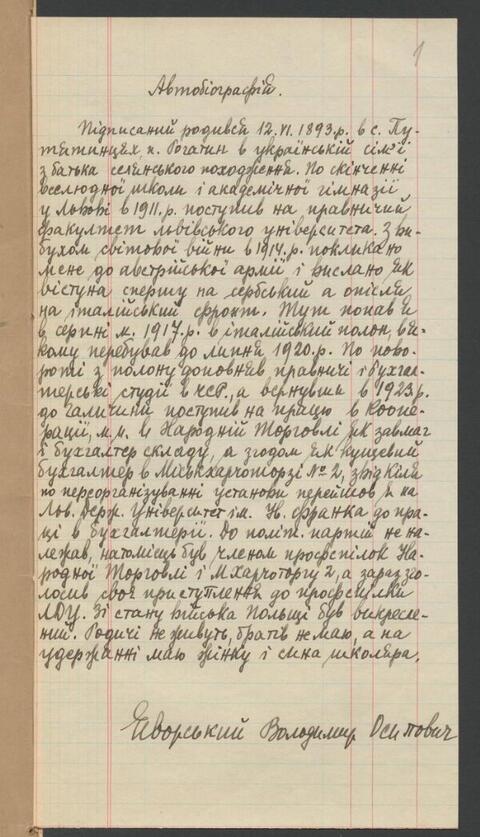 1
Автобіографія.
Підписаний родився 12.VI.1893.р. в с. Пу-
тятинцях, п. Рогатин в українській сім'ї
з батька селянського походження. По скінченні
вселюдної школи і академічної гімназії
у Львові в 1911.р. поступив на правничий
факультет львівського університета. З ви-
бухом світової війни в 1914.р. покликано
мене до австрійської армії і вислано як
вістуна сперту на сербський а опісля
на італійський фронт. Тут попав я
в серпні м. 1917.р. в італійский полон, в як-
кому перебував до липня 1920.р. По пово-
роті з полону доповнив правничі і бухгал-
терські студії в ЧСР., а вернувши в 1923.р.
до Галичини поступив на працю в Коопе-
рації, м. и. в Народній Торговлі як завмаг
і бухгалтер складу, а згодом як кущевий
бухгалтер в Міськхарчоторзі № 2, звідкіля
по переорганізуванні установи перейшов я на
Льв. Держ. Університет ім. Ів. Франка до пра-
ці в бухгалтерії. До політ. партій не на-
лежав, натомісць був членом профспілок На-
родної Торговлі і Мхарчоторгу 2, а зараз зго-
лосив своє приступлення до профспілки
ЛДУ. Зі стану війська Польщі був викресле-
ний. Родичі не живуть, братів не маю, а на
удержанні маю жінку і сина школяра.
Яворський Володимир Осипович